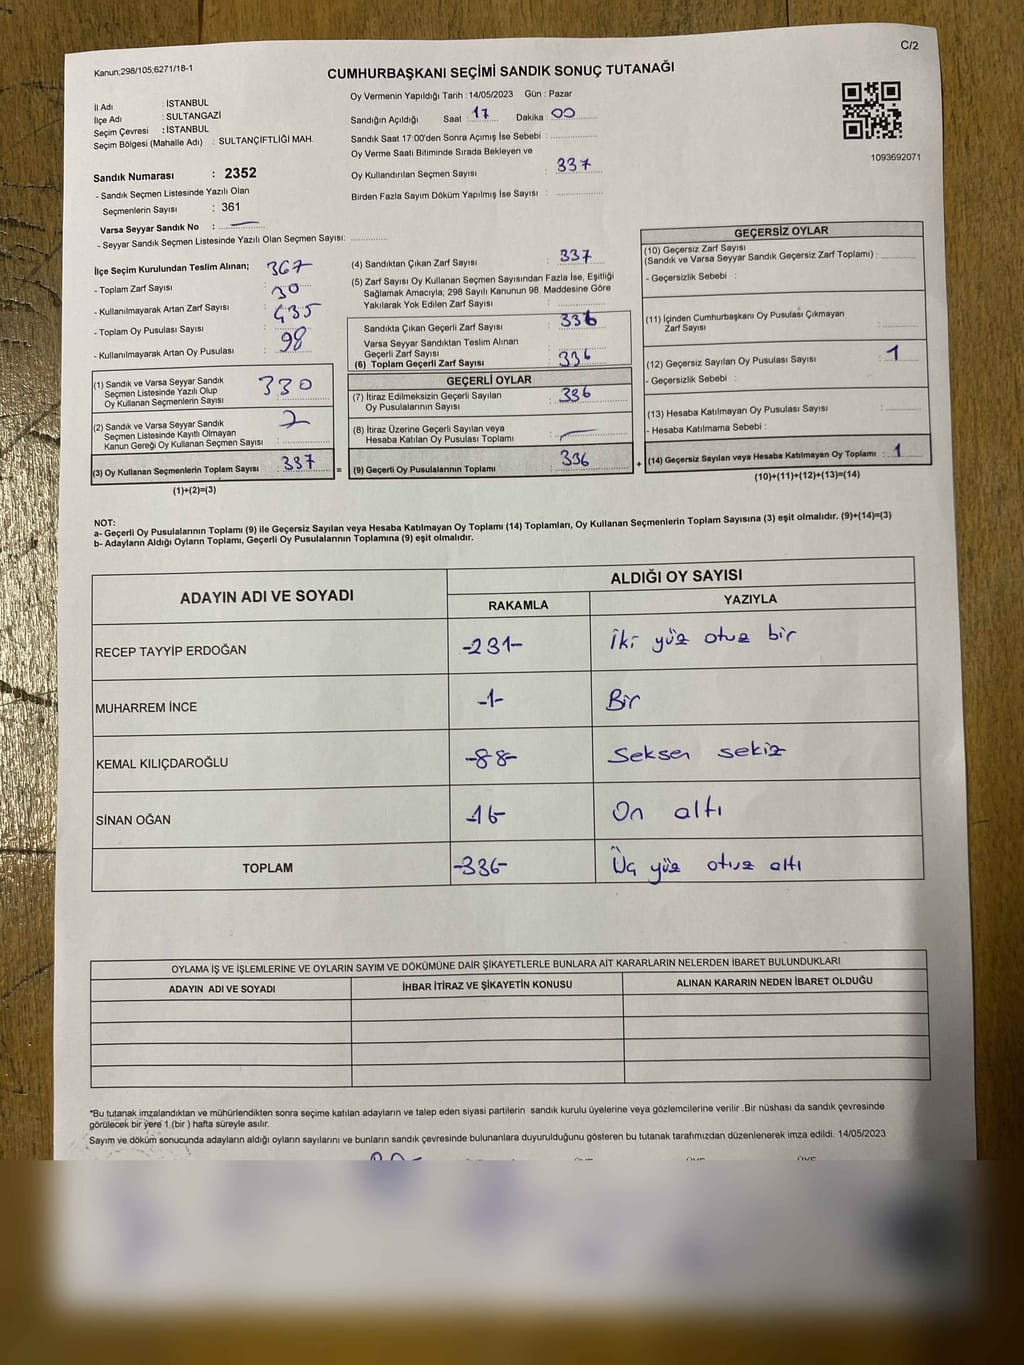 C/2
Kanun;298/105;6271/18-1
CUMHURBAŞKANI SEÇİMİ SANDIK SONUÇ TUTANAĞI
İl Adı : İSTANBUL
İlçe Adı : SULTANGAZİ
Seçim Çevresi : İSTANBUL
Seçim Bölgesi (Mahalle Adı) : SULTANÇİFTLİĞİ MAH.
Sandık Numarası : 2352
- Sandık Seçmen Listesinde Yazılı Olan
Seçmenlerin Sayısı : 361
Varsa Seyyar Sandık No :
- Seyyar Sandık Seçmen Listesinde Yazılı Olan Seçmen Sayısı:
Oy Vermenin Yapıldığı Tarih : 14/05/2023 Gün : Pazar
Sandığın Açıldığı Saat : 17 Dakika : 00
Sandık Saat 17:00'den Sonra Açımış İse Sebebi :
Oy Verme Saati Bitiminde Sırada Bekleyen ve
Oy Kullandırılan Seçmen Sayısı : 337
Birden Fazla Sayım Döküm Yapılmış İse Sayısı :
1093692071
İlçe Seçim Kurulundan Teslim Alınan;
- Toplam Zarf Sayısı : 367
- Kullanılmayarak Artan Zarf Sayısı : 30
- Toplam Oy Pusulası Sayısı : 435
- Kullanılmayarak Artan Oy Pusulası : 98
(1) Sandık ve Varsa Seyyar Sandık
Seçmen Listesinde Yazılı Olup
Oy Kullanan Seçmenlerin Sayısı : 330
(2) Sandık ve Varsa Seyyar Sandık
Seçmen Listesinde Kayıtlı Olmayan
Kanun Gereği Oy Kullanan Seçmen Sayısı :
(3) Oy Kullanan Seçmenlerin Toplam Sayısı : 337
(1)+(2)=(3)
=
(4) Sandıktan Çıkan Zarf Sayısı : 337
(5) Zarf Sayısı Oy Kullanan Seçmen Sayısından Fazla İse, Eşitliği
Sağlamak Amacıyla; 298 Sayılı Kanunun 98. Maddesine Göre
Yakılarak Yok Edilen Zarf Sayısı :
Sandıkta Çıkan Geçerli Zarf Sayısı : 336
Varsa Seyyar Sandıktan Teslim Alınan
Geçerli Zarf Sayısı :
(6) Toplam Geçerli Zarf Sayısı : 336
GEÇERLİ OYLAR
(7) İtiraz Edilmeksizin Geçerli Sayılan
Oy Pusulalarının Sayısı : 336
(8) İtiraz Üzerine Geçerli Sayılan veya
Hesaba Katılan Oy Pusulası Toplamı :
(9) Geçerli Oy Pusulalarının Toplamı : 336
+
GEÇERSİZ OYLAR
(10) Geçersiz Zarf Sayısı
(Sandık ve Varsa Seyyar Sandık Geçersiz Zarf Toplamı) :
- Geçersizlik Sebebi :
(11) İçinden Cumhurbaşkanı Oy Pusulası Çıkmayan
Zarf Sayısı :
(12) Geçersiz Sayılan Oy Pusulası Sayısı : 1
- Geçersizlik Sebebi :
(13) Hesaba Katılmayan Oy Pusulası Sayısı :
- Hesaba Katılmama Sebebi :
(14) Geçersiz Sayılan veya Hesaba Katılmayan Oy Toplamı : 1
(10)+(11)+(12)+(13)=(14)
NOT:
a- Geçerli Oy Pusulalarının Toplamı (9) ile Geçersiz Sayılan veya Hesaba Katılmayan Oy Toplamı (14) Toplamları, Oy Kullanan Seçmenlerin Toplam Sayısına (3) eşit olmalıdır. (9)+(14)=(3)
b- Adayların Aldığı Oyların Toplamı, Geçerli Oy Pusulalarının Toplamına (9) eşit olmalıdır.
ADAYIN ADI VE SOYADI
ALDIĞI OY SAYISI
RAKAMLA YAZIYLA
RECEP TAYYİP ERDOĞAN -231- İki yüz otuz bir
MUHARREM İNCE -1- Bir
KEMAL KILIÇDAROĞLU -88- Seksen sekiz
SİNAN OĞAN -16- On altı
TOPLAM -336- Üç yüz otuz altı
OYLAMA İŞ VE İŞLEMLERİNE VE OYLARIN SAYIM VE DÖKÜMÜNE DAİR ŞİKAYETLERLE BUNLARA AİT KARARLARIN NELERDEN İBARET BULUNDUKLARI
ADAYIN ADI VE SOYADI İHBAR İTİRAZ VE ŞİKAYETİN KONUSU ALINAN KARARIN NEDEN İBARET OLDUĞU
*Bu tutanak imzalandıktan ve mühürlendikten sonra seçime katılan adayların ve talep eden siyasi partilerin sandık kurulu üyelerine veya gözlemcilerine verilir .Bir nüshası da sandık çevresinde
görülecek bir yere 1 (bir ) hafta süreyle asılır.
Sayım ve döküm sonucunda adayların aldığı oyların sayılarını ve bunların sandık çevresinde bulunanlara duyurulduğunu gösteren bu tutanak tarafımızdan düzenlenerek imza edildi. 14/05/2023